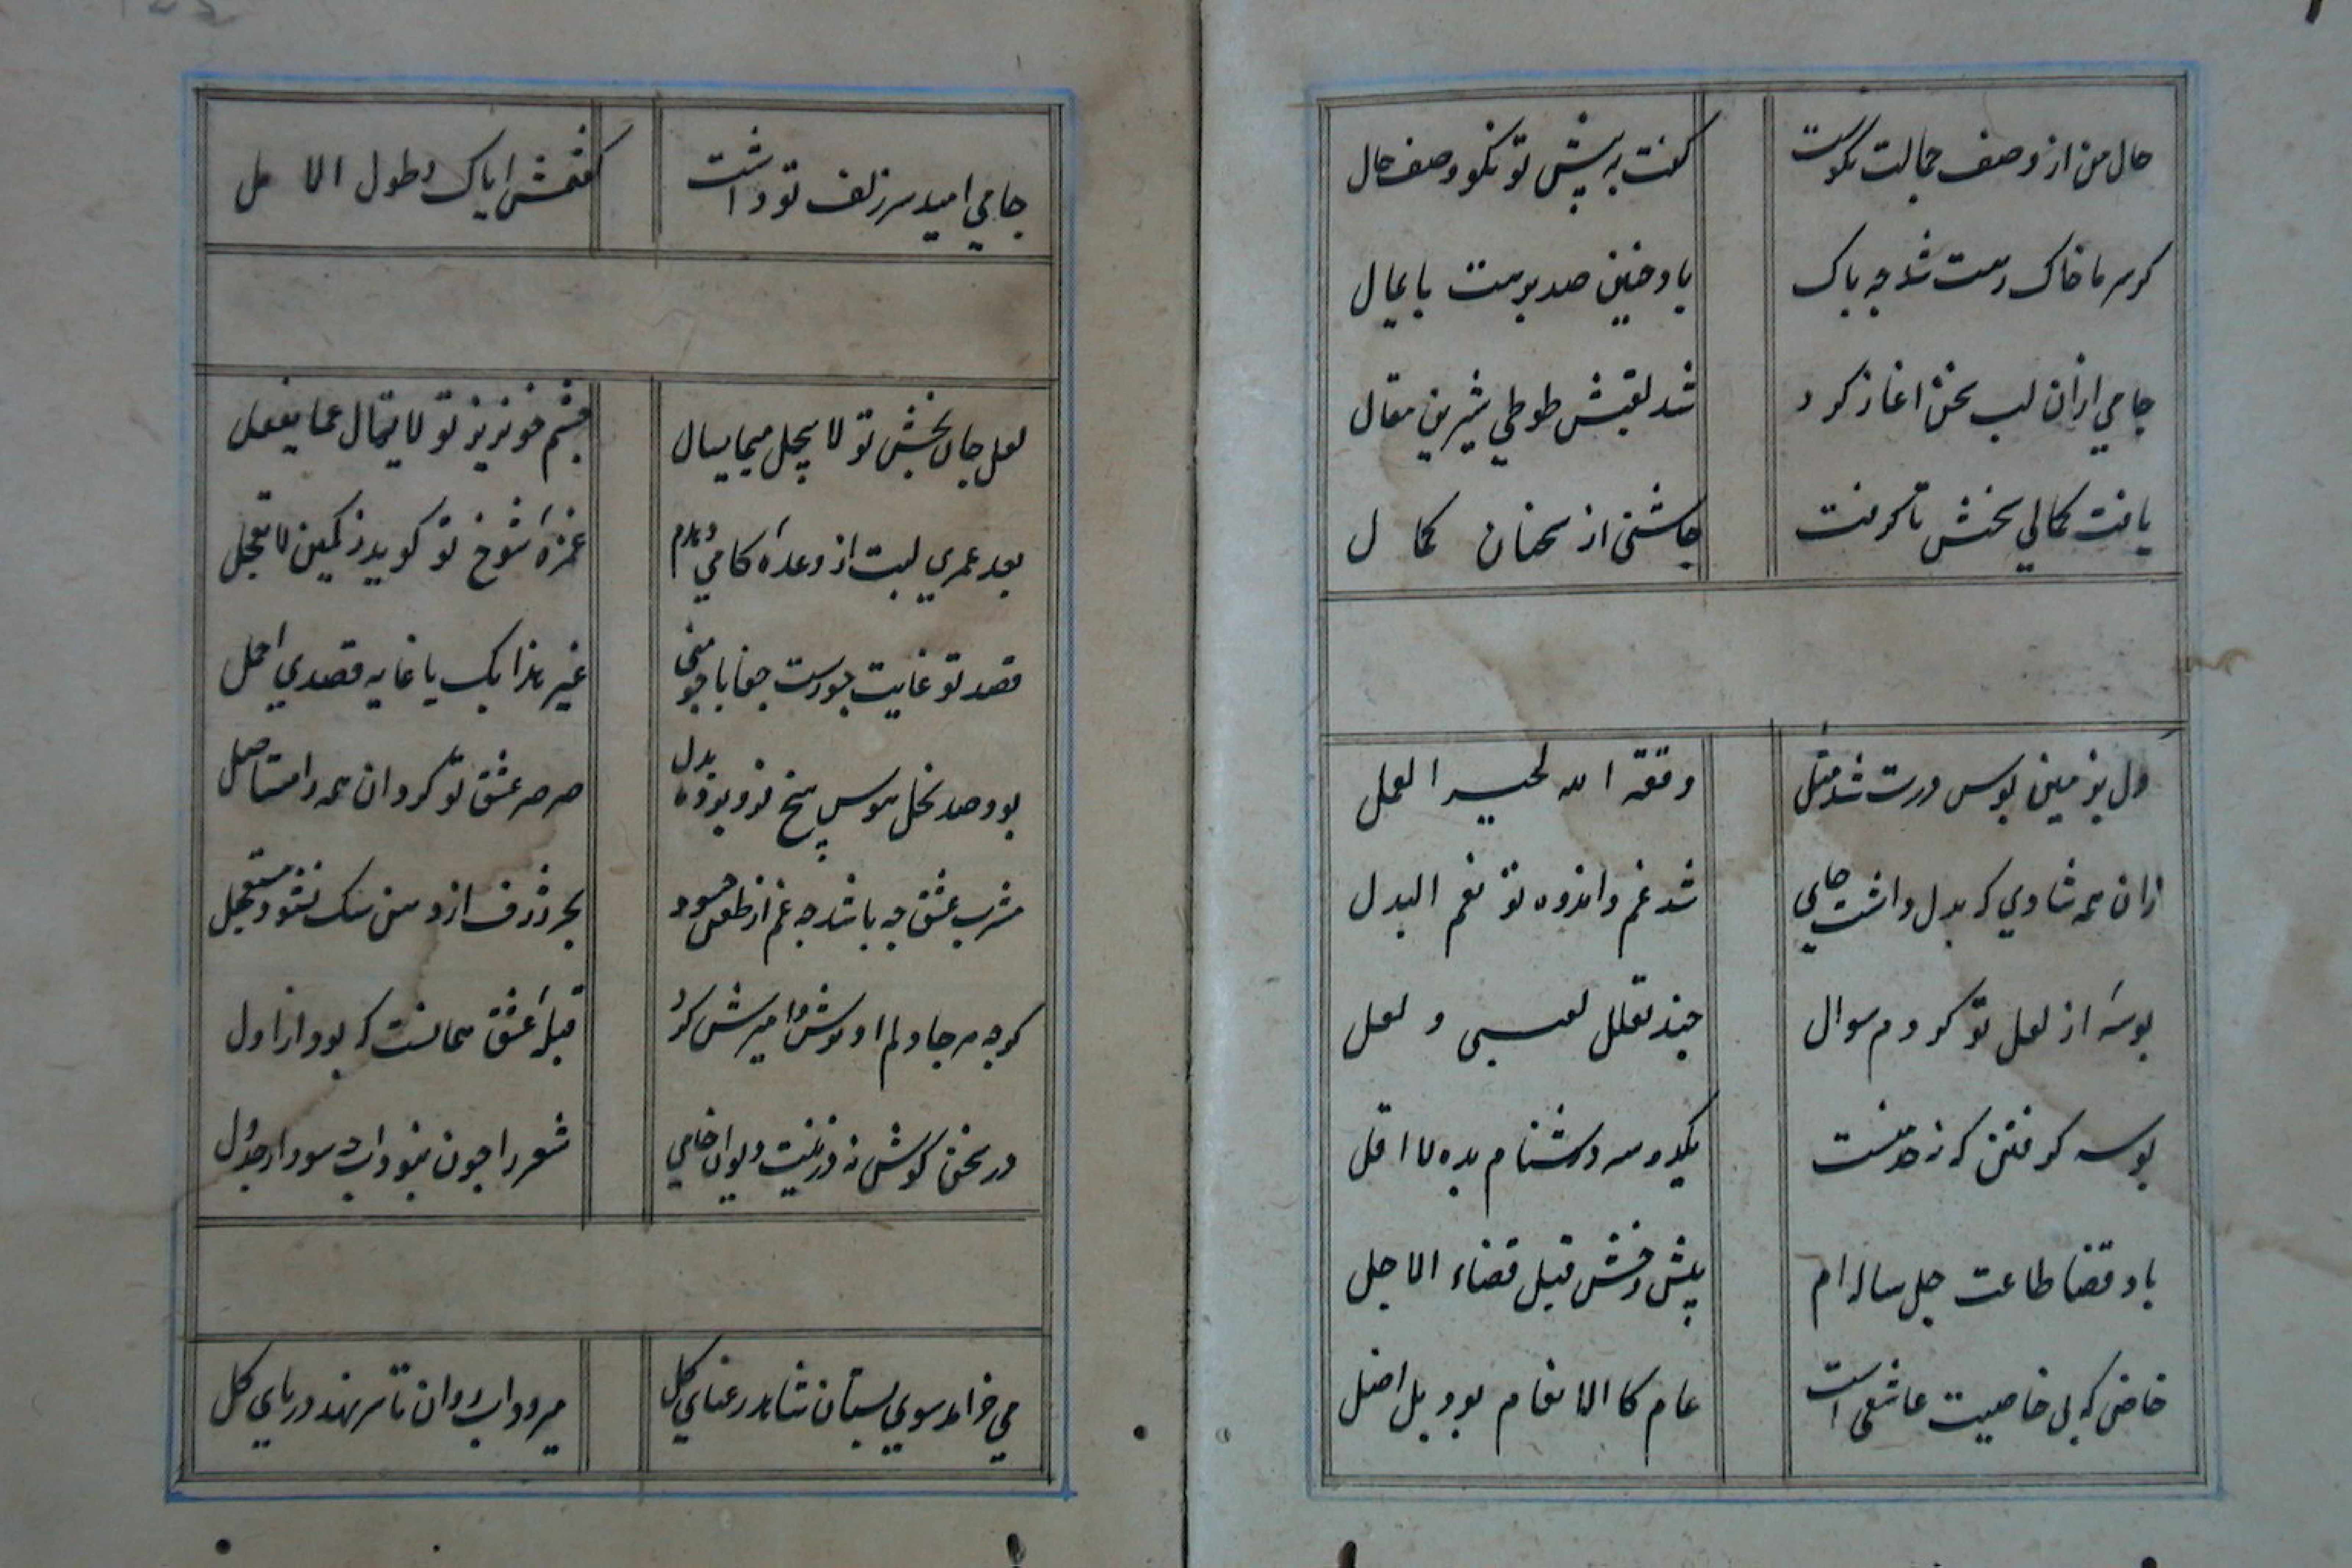 حال من از وصف جمالت نکوست	گفت به پیش تو نکو وصف حال
گر سر ما خاک رهت شد چه باک	باد چنین صد برهت پایمال
جامي ازان لب سخن اغاز کرد	شد لقبش طوطي شیرین مقال
یافت کمالي سخنش تا گرفت	چاشنی از سخنان کمال
دل بزمین بوس درت شد مثل	وفقه الله لخیر العمل
زان همه شادي که بدل داشت جاي	شد غم و اندوه تو نعم البدل
بوسهٔ از لعل تو کردم سوال	چند تعلل بعسی و لعل
بوسه گرفتن گرنه حد منست	یکدو سه دشنام بده لا اقل
باد قضا طاعت چل ساله ام	پیش رخش قبل قضاء الاجل
خاص که بی خاصیت عاشقی است	عام کالانعام بود بل اضل
جامي امید سر زلف تو داشت	گفتمش ایاک و طول الامل
لعل جان بخش تو لا یبخل عما یسال	چشم خونریز تو لا یسال عما یفعل
بعد عمري لبت از وعدهٔ کامي دهدم	غمزهٔ شوخ تو گوید ز کمین لا تعجل
قصد تو غایت جورست جفا با چو منی	غیر هذا بک یا غایه قصدي اجمل
بود صد نخل هوس بیخ فرو برده بدل	صرصر عشق تو کرد ان همه را مستاصل
مشرب عشق چه باشد چه غم از طعن حسود	بحر ژرف از دهن سک نشود مستعمل
گرچه هر جا دلم او شوش امیزش کرد	قبلهٔ عشق همانست که بود از اول
در سخن کوش نه در زینت دیوان جامي	شعر را چون نبود اب چه سود از جدول
مي خرامد سوي بستان شاهد رعناي گل	میرود اب روان تا سر نهد در پاي گل